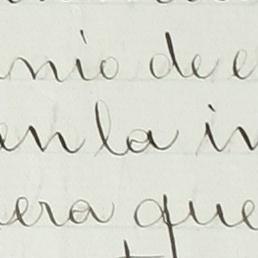 nio de e
en la in
era que